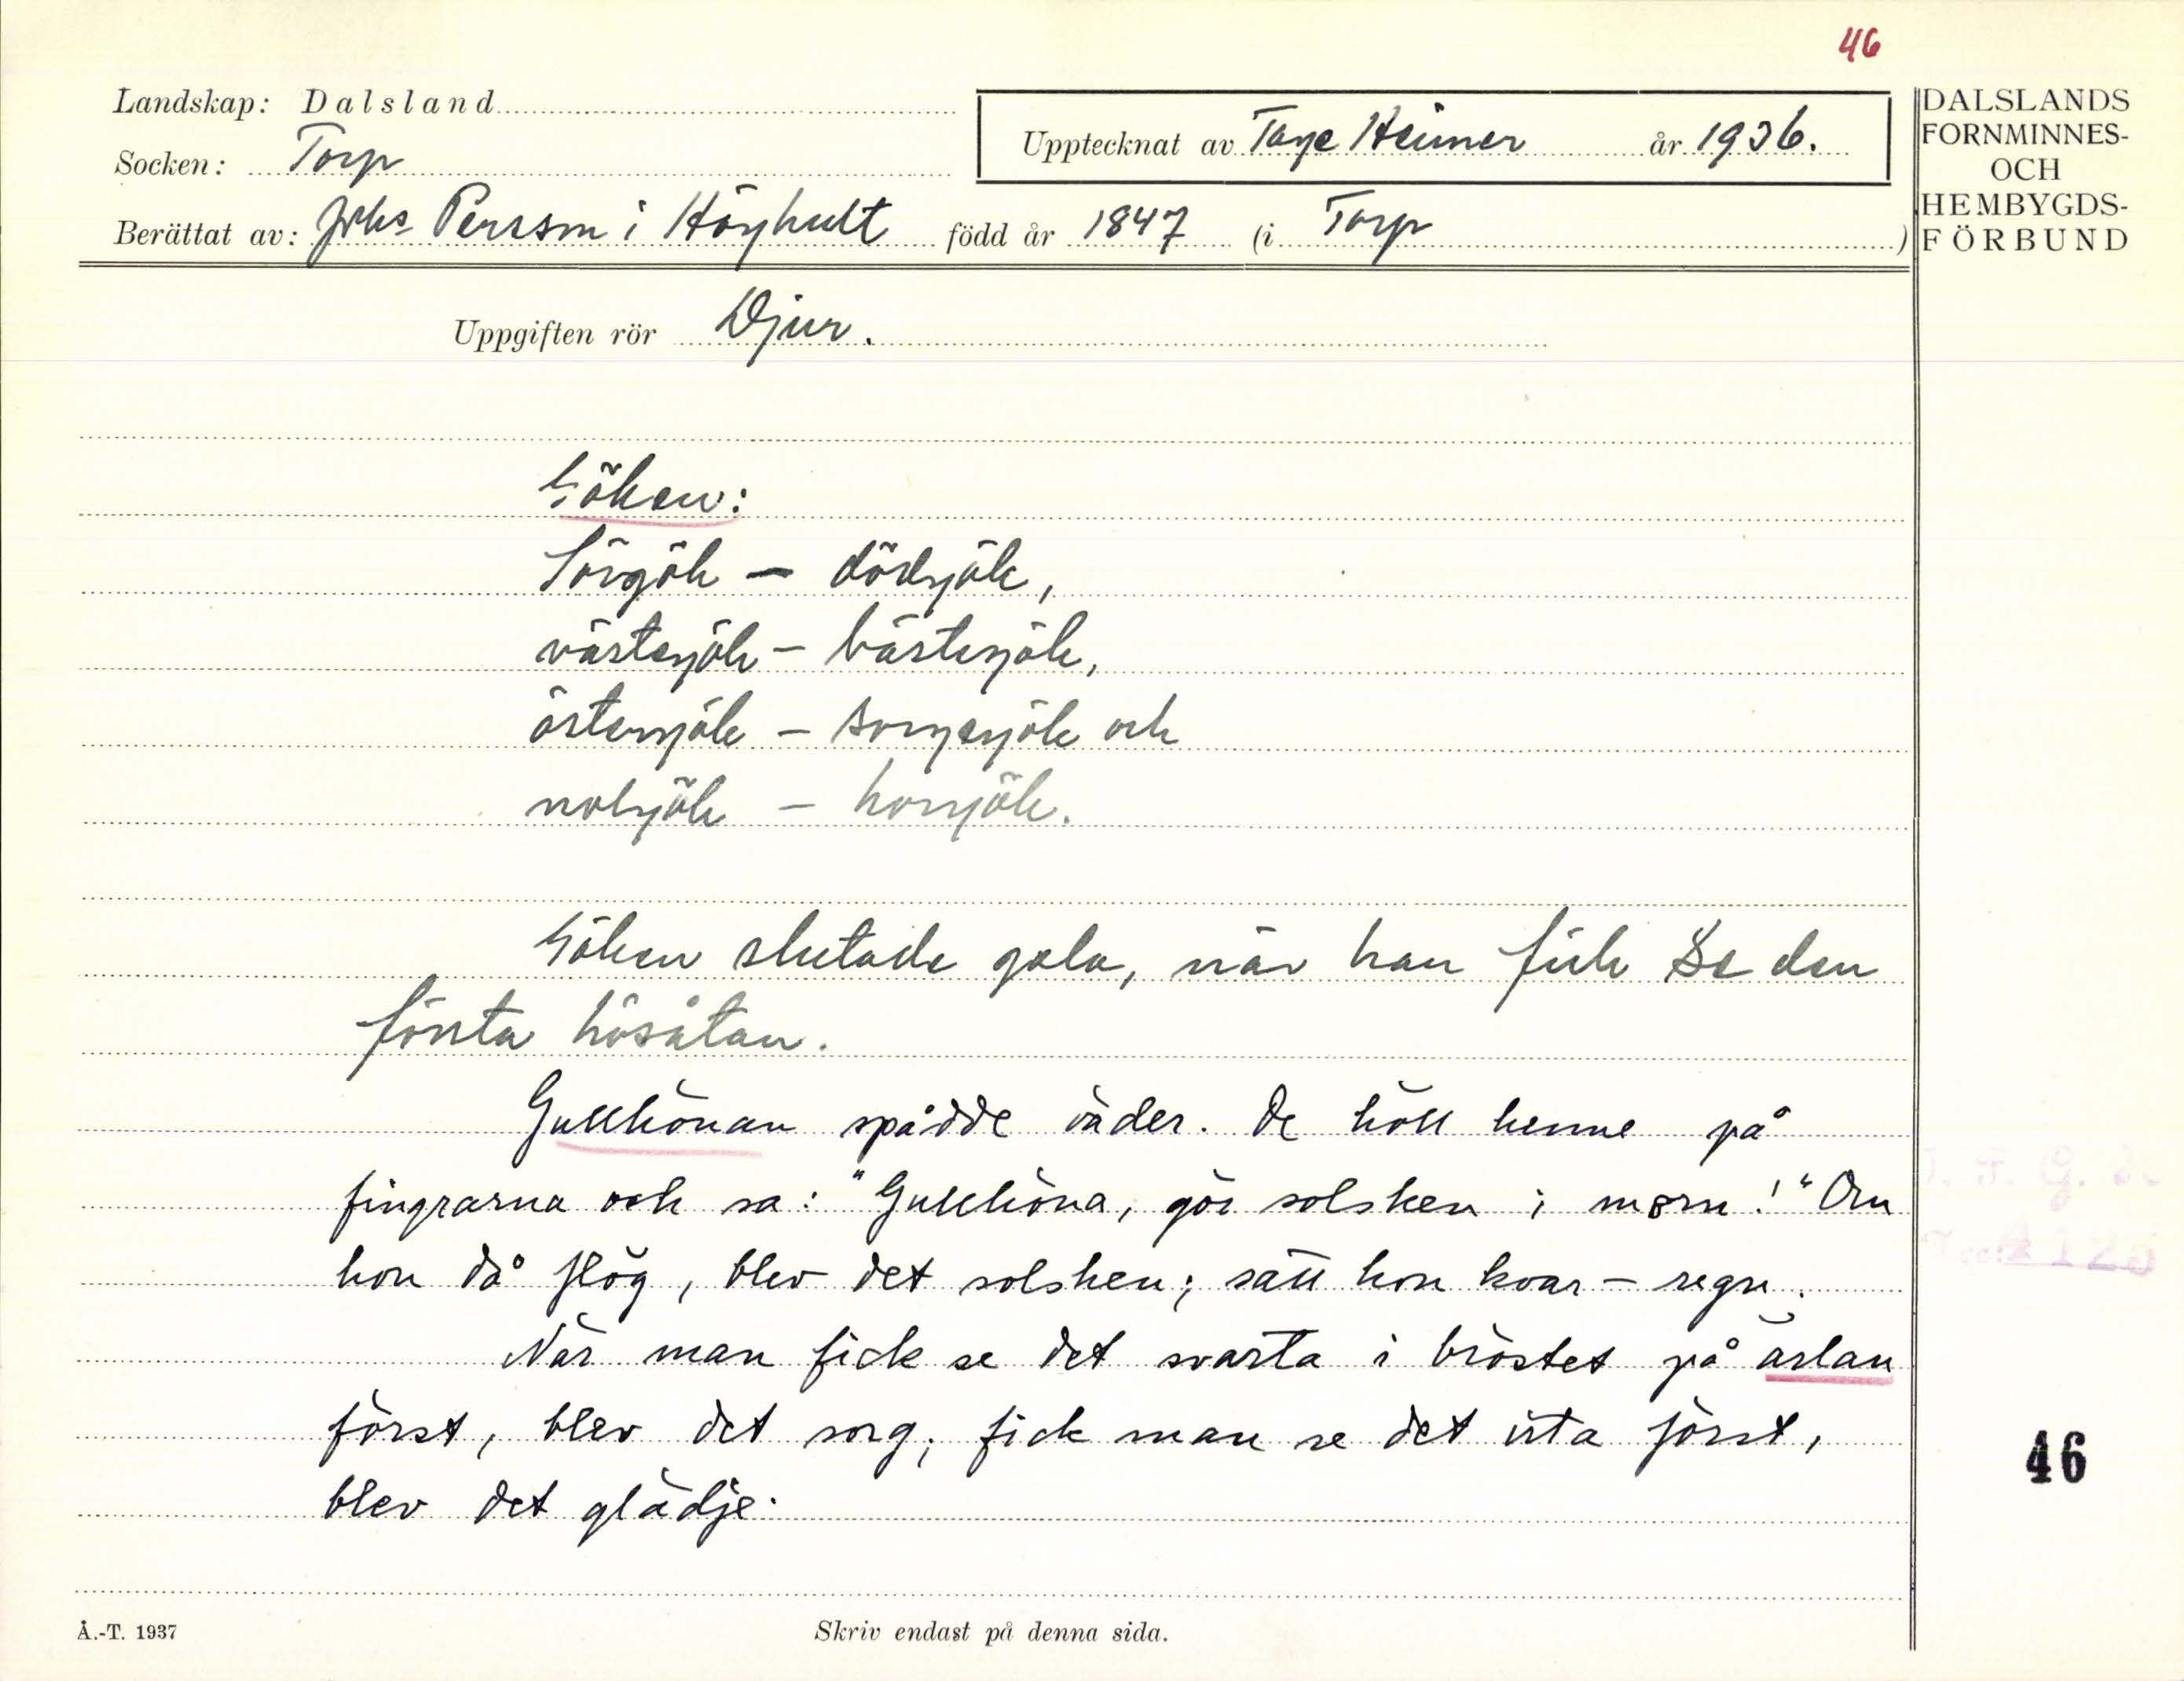 46
Landskap: Dalsland
Upptecknat av Tage Heimer år 1936.
Socken: Torp
Berättat av: Johs Persson i Höghult född år 1847 (i Torp)
DALSLANDS
FORNMINNES-
OCH
HEMBYGDS-
FÖRBUND
Uppgiften rör Djur.
Göken:
Sörgök – dödgök,
västergök – bästergök,
östergök – sorgergök och
nolgök – horgök.
Göken slutade gala, när han fick se den
första hösåtan.
Gullhönan spådde väder. De höll henne på
fingrarna och sa: "Gullhöna, gör solsken i morn!" Om
hon då flög, blev det solsken; satt hon kvar – regn.
När man fick se det svarta i bröstet på ärlan
först, blev det sorg; fick man se det vita först,
blev det glädje.
46
Å.-T. 1937
Skriv endast på denna sida.